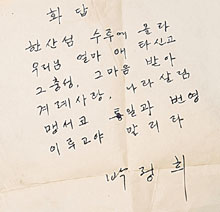 화답
한산섬 수루에 올라
우리님 얼마 애 타신고
그 충성, 그 마음 받아
겨레사랑, 나라살림
맹서코 통일과 번영
이루고야 말리라
박랑희